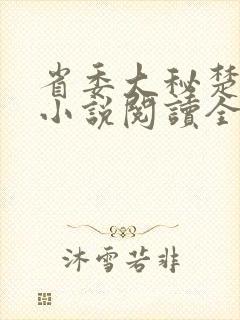 省委大秘楚
小說閱讀全
沐雪若非